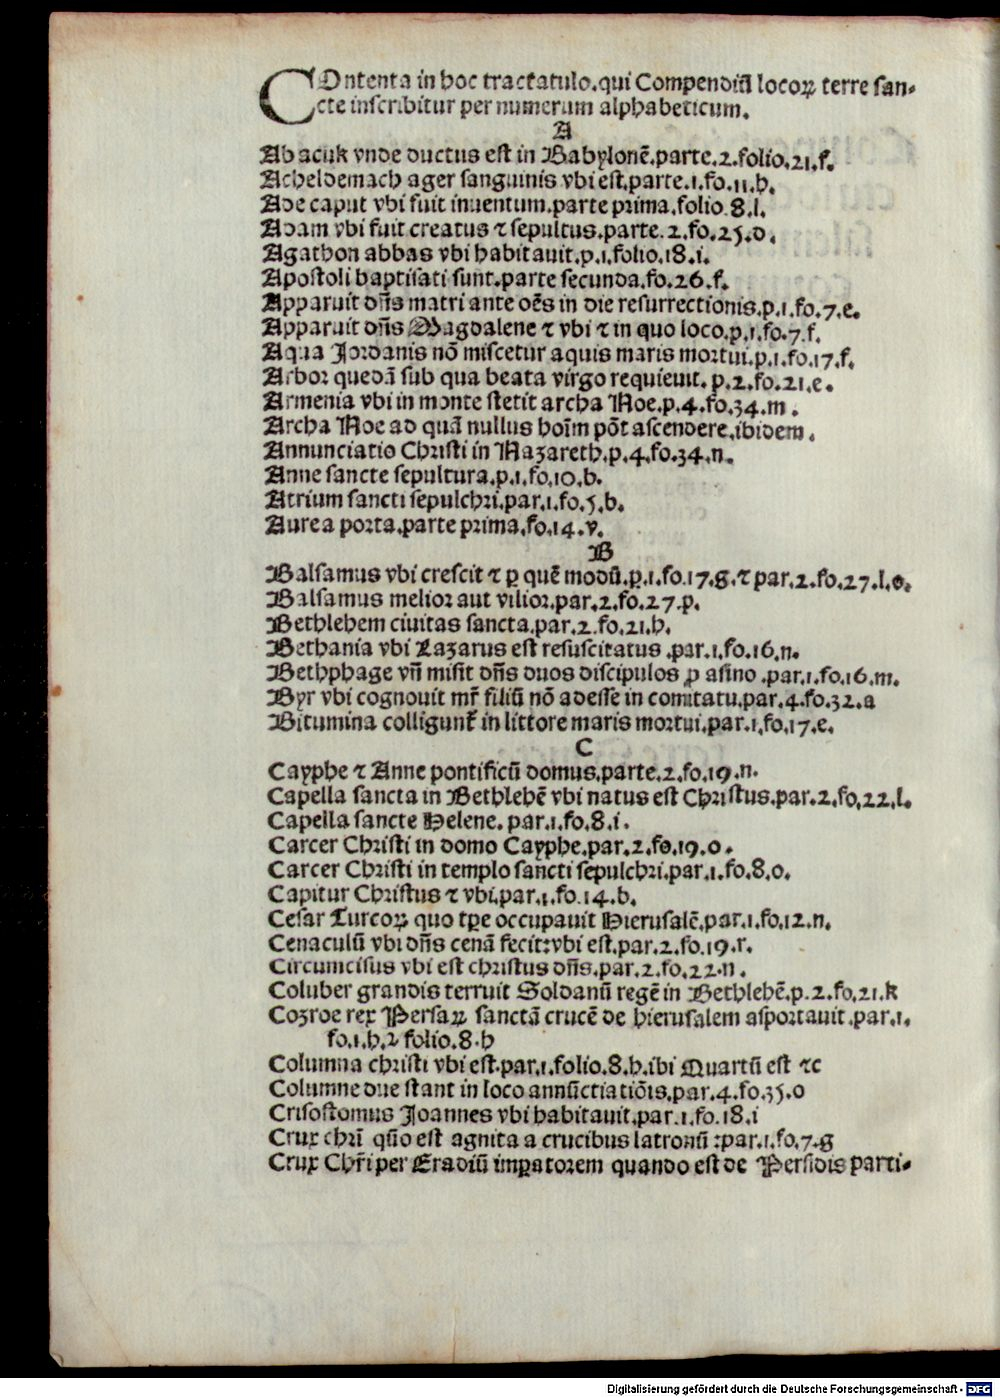 COntenta in hoc tractatulo.qui Compendiũ locoꝝ terre san-
cte inscribitur per numerum alphabeticum.
A
Abacuk vnde ductus est in Babylonē.parte.2.folio.21.f.
Acheldemach ager sanguinis vbi est.parte.1.fo.11.h.
Ade caput vbi fuit inuentum.parte prima.folio.8.l.
Adam vbi fuit creatus ⁊ sepultus.parte.2.fo.25.d.
Agathon abbas vbi habitauit.p.1.folio.18.i.
Apostoli baptisati sunt.parte secunda.fo.26.f.
Apparuit dñs matri ante oēs in die resurrectionis.p.1.fo.7.e.
Apparuit dñs Magdalene ⁊ vbi ⁊ in quo loco.p.1.fo.7.f.
Aqua Jordanis nō miscetur aquis maris mortui.p.1.fo.17.f.
Arbor quedā sub qua beata virgo requieuit. p.2.fo.21.e.
Armenia vbi in monte stetit archa Noe.p.4.fo.34.m.
Archa Noe ad quā nullus hoīm pōt ascendere.ibidem.
Annunciatio Christi in Nazareth.p.4.fo.34.n.
Anne sancte sepultura.p.1.fo.10.b.
Atrium sancti sepulchri.par.1.fo.5.b.
Aurea porta.parte prima.fo.14.v.
B
Balsamus vbi crescit ⁊ ꝑ quē modũ.p.1.fo.17.g.⁊ par.2.fo.27.l.o.
Balsamus melior aut vilior.par.2.fo.27.p.
Bethlehem ciuitas sancta.par.2.fo.21.h.
Bethania vbi Lazarus est resuscitatus .par.1.fo.16.n.
Bethphage vñ misit dñs duos discipulos ꝓ asino .par.1.fo.16.m.
Byr vbi cognouit mr̄ filiũ nō adesse in comitatu.par.4.fo.32.a
Bitumina colligunt᷑ in littore maris mortui.par.1.fo.17.e.
C
Cayphe ⁊ Anne pontificũ domus.parte.2.fo.19.n.
Capella sancta in Bethlehē vbi natus est Christus.par.2.fo.22.l.
Capella sancte Helene. par.1.fo.8.i.
Carcer Christi in domo Cayphe.par.2.fo.19.o.
Carcer Christi in templo sancti sepulchri.par.1.fo.8.o.
Capitur Christus ⁊ vbi.par.1.fo.14.b.
Cesar Turcoꝝ quo tꝑe occupauit Hierusalē.par.1.fo.12.n.
Cenaculũ vbi dñs cenā fecit:vbi est.par.2.fo.19.r.
Circumcisus vbi est christus dñs.par.2.fo.22.n.
Coluber grandis terruit Soldanũ regē in Bethlehē.p.2.fo.21.k
Cozroe rex Persaꝝ sanctā crucē de hierusalem asportauit.par.1.
fo.1.h.⁊ folio.8.h
Columna christi vbi est.par.1.folio.8.h.ibi Quartũ est ⁊c
Columne due stant in loco annũctiatiōis.par.4.fo.35.o
Crisostomus Joannes vbi habitauit.par.1.fo.18.i
Crux chr̄i qũo est agnita a crucibus latronũ :par.1.fo.7.g
Crux Chr̄i per Eradiũ imꝑatorem quando est de Persidis parti-
Digitalisierung gefördert durch die Deutsche Forschungsgemeinschaft - DFG